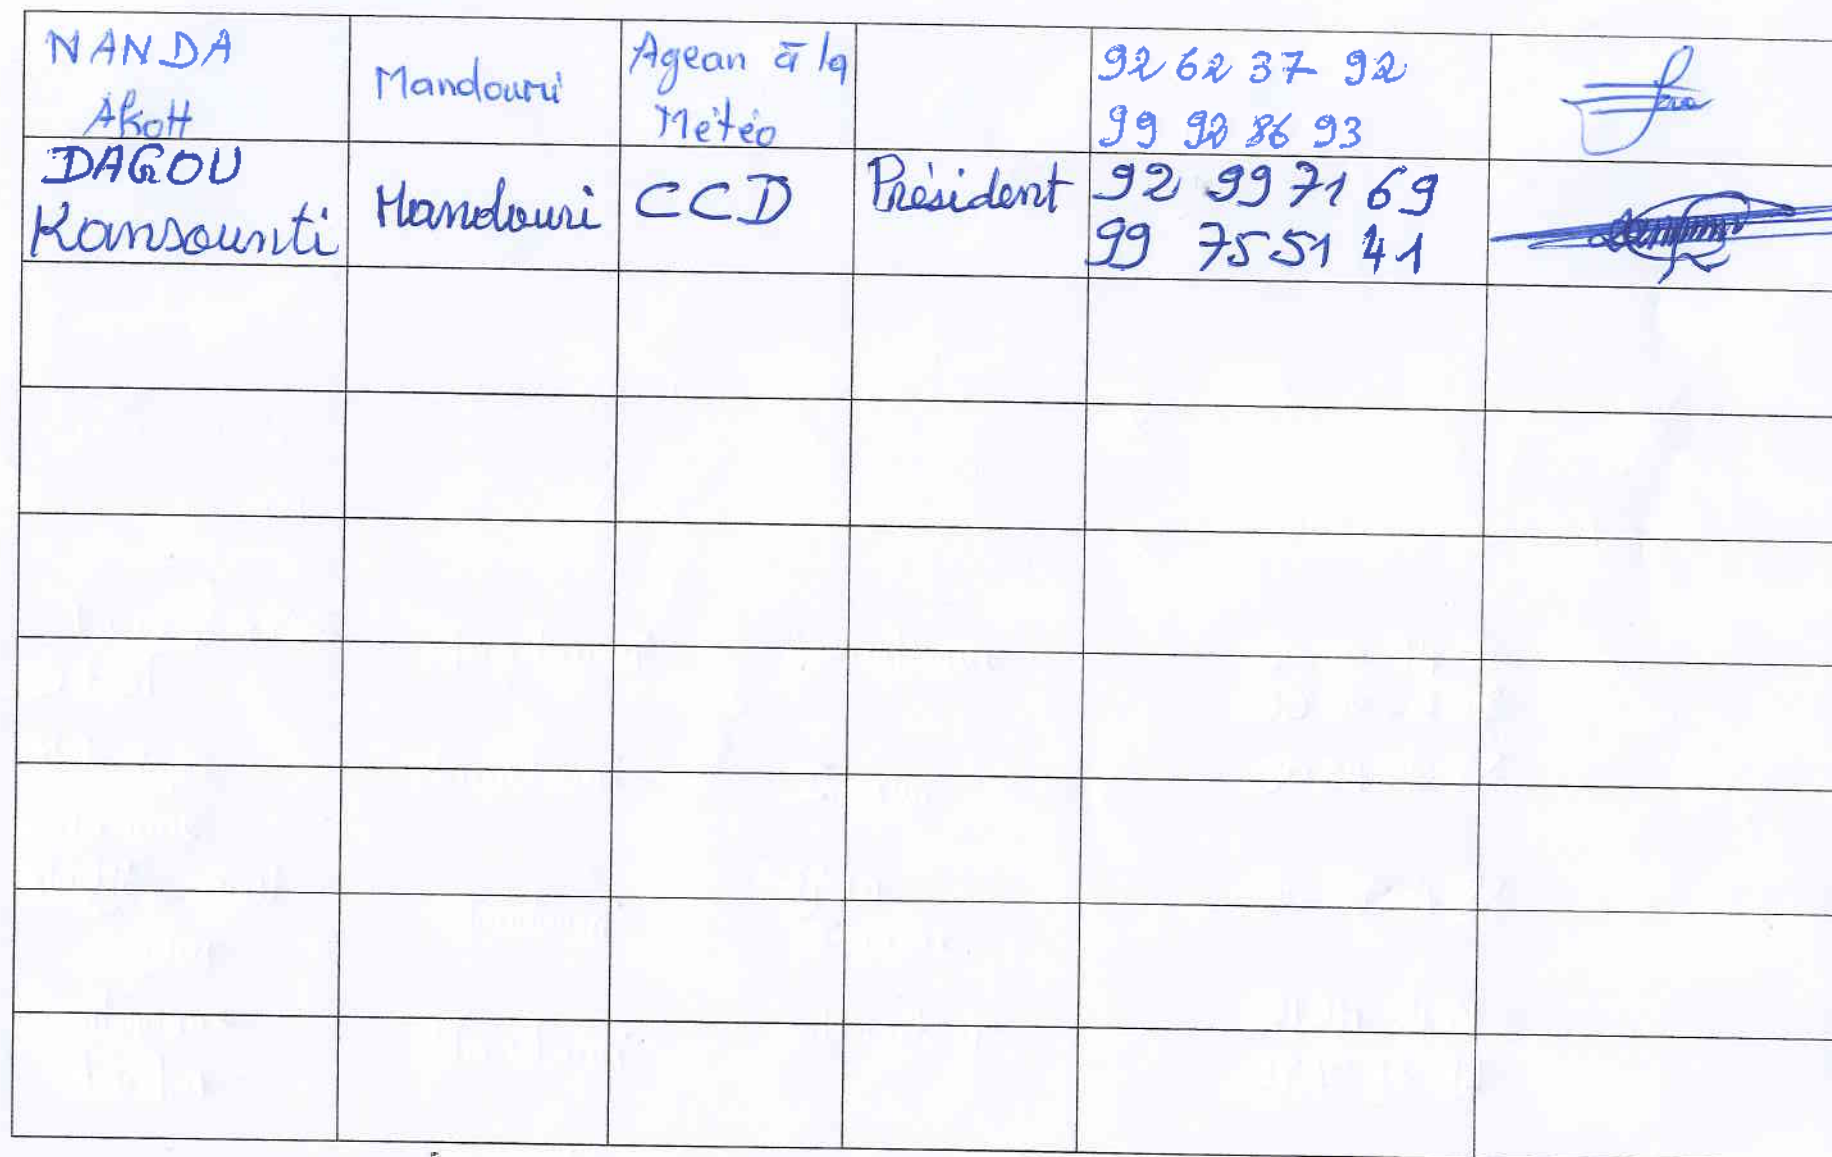 NANDA
Akott
Mandouri
Agean à la
Météo
92 62 37 92
99 90 86 93
DAGOU
Kansounti
Mandouri
CCD
Président
92 99 71 69
99 75 51 41